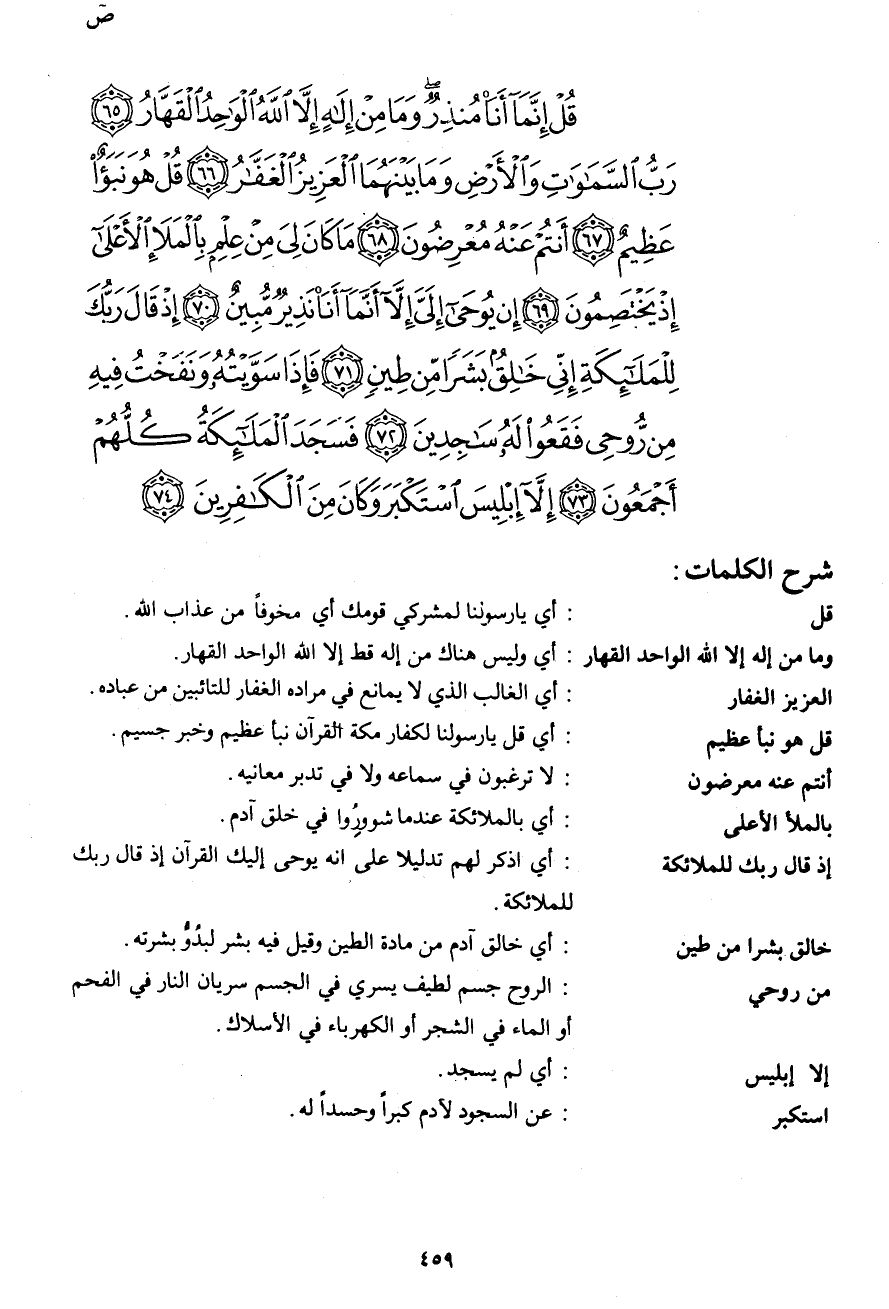 صٓ
قُلْ إِنَّمَآ أَنَا۠ مُنذِرٌۖ وَمَا مِنْ إِلَٰهٍ إِلَّا ٱللَّهُ ٱلْوَٰحِدُ ٱلْقَهَّارُ ٦٥
رَبُّ ٱلسَّمَٰوَٰتِ وَٱلْأَرْضِ وَمَا بَيْنَهُمَا ٱلْعَزِيزُ ٱلْغَفَّٰرُ ٦٦ قُلْ هُوَ نَبَؤٌا۟
عَظِيمٌ ٦٧ أَنتُمْ عَنْهُ مُعْرِضُونَ ٦٨ مَا كَانَ لِىَ مِنْ عِلْمٍۭ بِٱلْمَلَإِ ٱلْأَعْلَىٰٓ
إِذْ يَخْتَصِمُونَ ٦٩ إِن يُوحَىٰٓ إِلَىَّ إِلَّآ أَنَّمَآ أَنَا۠ نَذِيرٌ مُّبِينٌ ٧٠ إِذْ قَالَ رَبُّكَ
لِلْمَلَٰٓئِكَةِ إِنِّى خَٰلِقٌۢ بَشَرًا مِّن طِينٍ ٧١ فَإِذَا سَوَّيْتُهُۥ وَنَفَخْتُ فِيهِ
مِن رُّوحِى فَقَعُوا۟ لَهُۥ سَٰجِدِينَ ٧٢ فَسَجَدَ ٱلْمَلَٰٓئِكَةُ كُلُّهُمْ
أَجْمَعُونَ ٧٣ إِلَّآ إِبْلِيسَ ٱسْتَكْبَرَ وَكَانَ مِنَ ٱلْكَٰفِرِينَ ٧٤
شرح الكلمات :
قل : أي يارسولنا لمشركي قومك أي مخوفاً من عذاب الله .
وما من إله إلا الله الواحد القهار : أي وليس هناك من إله قط إلا الله الواحد القهار.
العزيز الغفار : أي الغالب الذي لا يمانع في مراده الغفار للتائبين من عباده.
قل هو نبأ عظيم : أي قل يارسولنا لكفار مكة القرآن نبأ عظيم وخبر جسيم.
أنتم عنه معرضون : لا ترغبون في سماعه ولا في تدبر معانيه.
بالملأ الأعلى : أي بالملائكة عندما شوورُوا في خلق آدم.
إذ قال ربك للملائكة : أي اذكر لهم تدليلا على انه يوحى إليك القرآن إذ قال ربك
للملائكة.
خالق بشرا من طين : أي خالق آدم من مادة الطين وقيل فيه بشر لبدُوُّ بشرته.
من روحي : الروح جسم لطيف يسري في الجسم سريان النار في الفحم
أو الماء في الشجر أو الكهرباء في الأسلاك.
إلا إبليس : أي لم يسجد.
استكبر : عن السجود لآدم كبراً وحسداً له.
٤٥٩